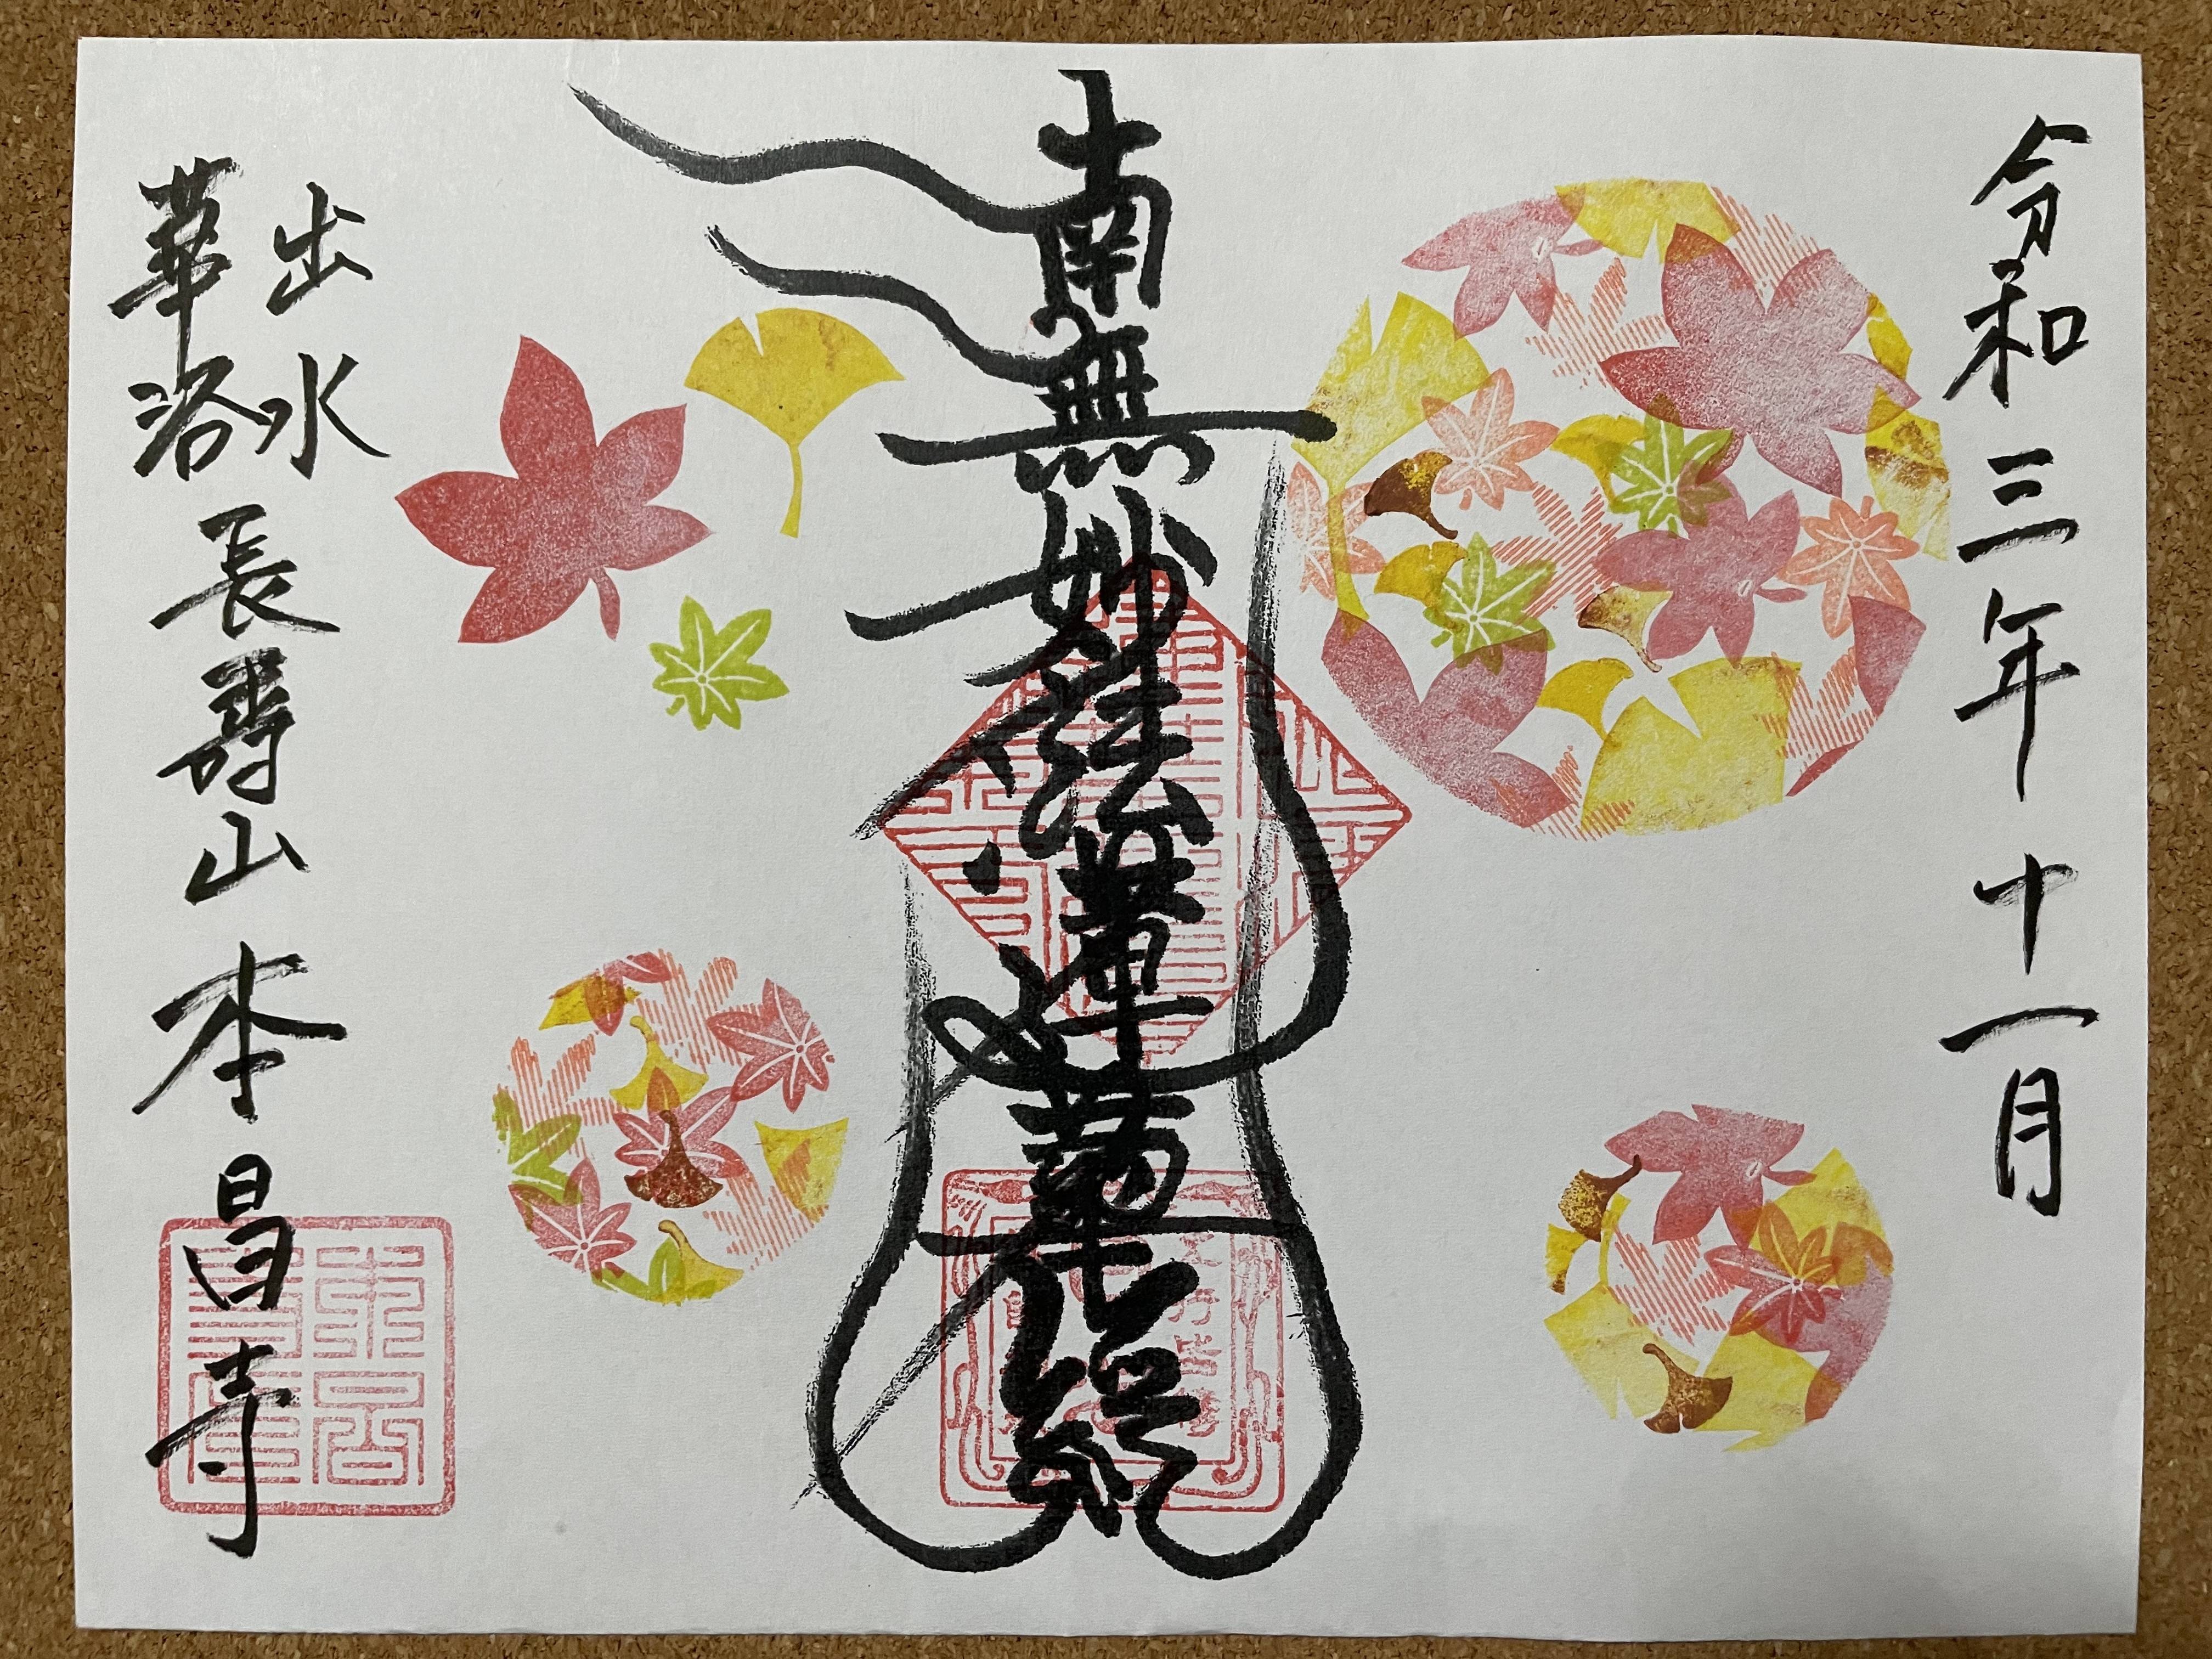 令和三年十一月
南無妙法蓮華経
出水
華洛
長壽山
本昌寺